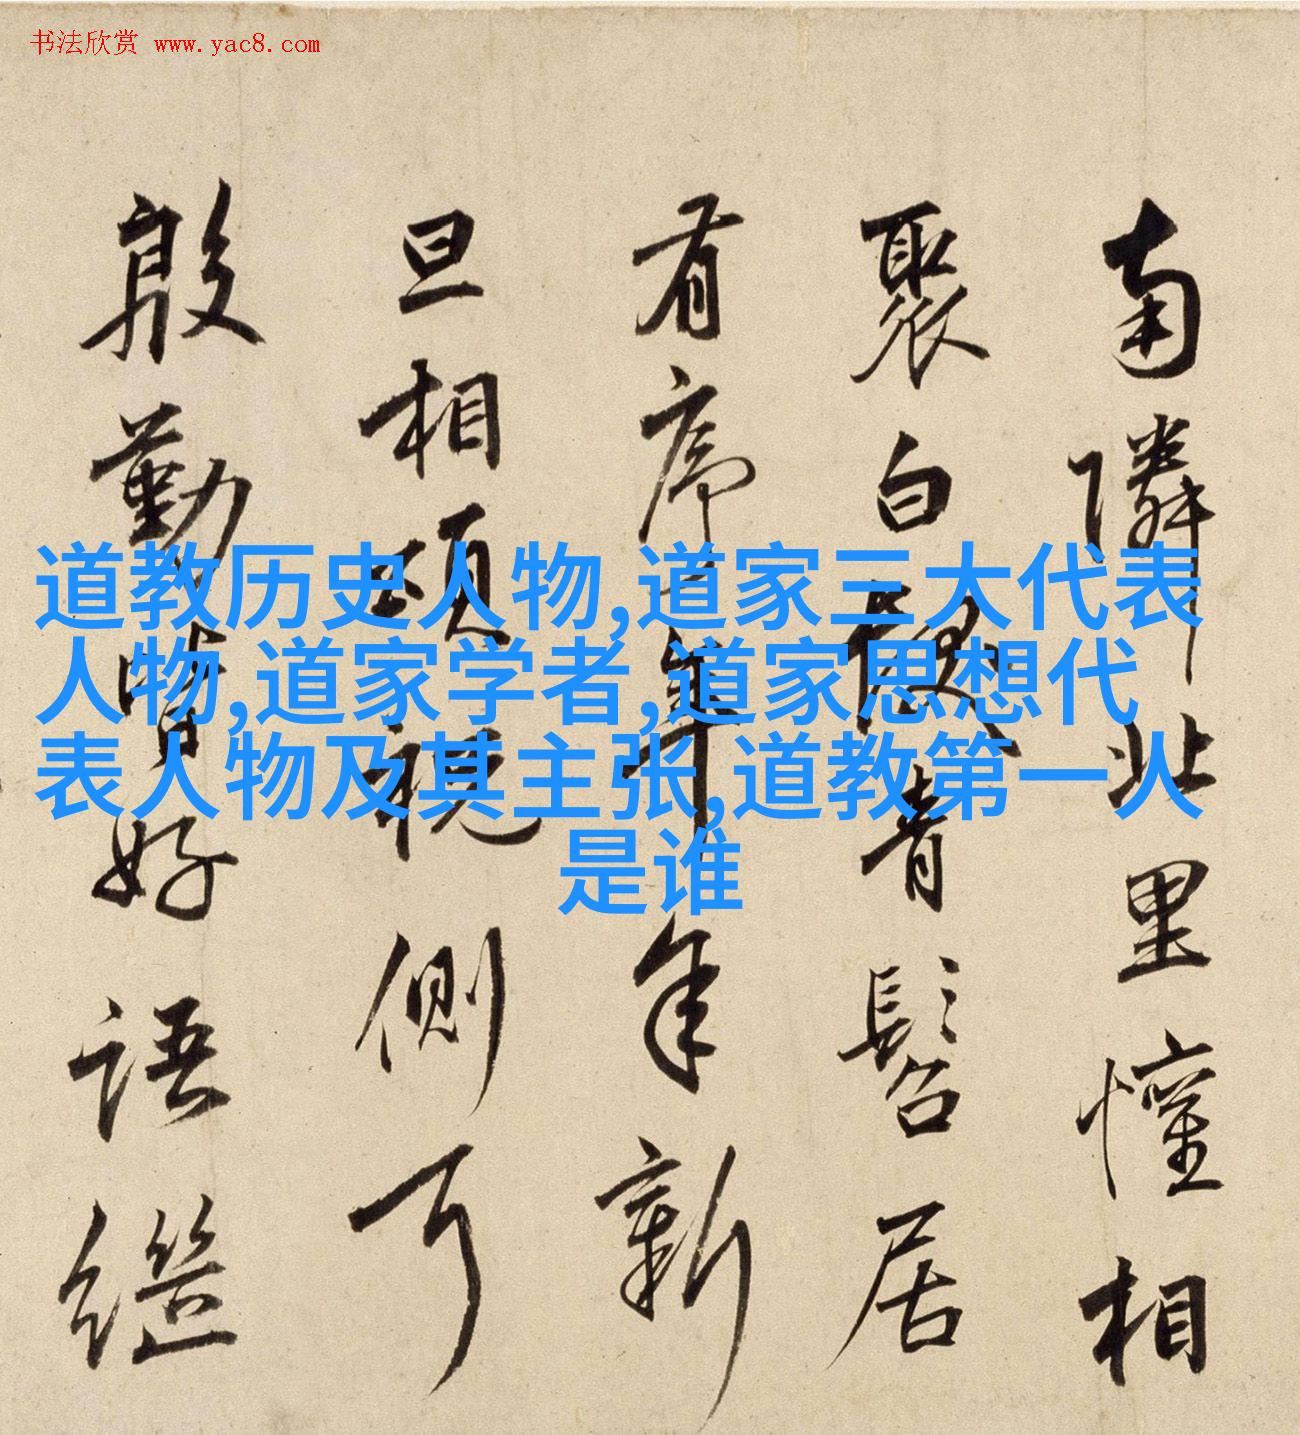 书法欣赏 www.yac8.com
南隣北里懽相
聚白青髫居
有序年年新
旦相頌祝側
殷勤好語繼
道教历史人物,道家三大代表
人物,道家学者,道家思想代
表人物及其主张,道教第一人
是谁